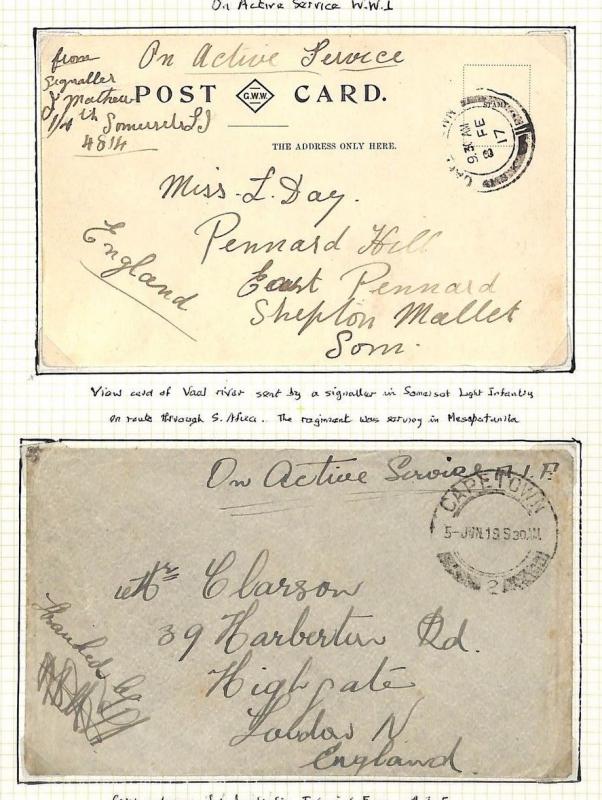 On Active Service W.W.I
from
On Active Service
Signaller
J Mathews
POST G.W.W. CARD.
1/4th Somersets L.I
4814
STAMP
9.30 AM
8 FE
17
THE ADDRESS ONLY HERE.
Miss. L. Day.
Pennard Hill
East Pennard
Shepton Mallet
Som.
England
View card of Vaal river sent by a signaller in Somerset Light Infantry
en route through S. Africa. The regiment was serving in Mesopotamia
On Active Service A.I.F.
CAPETOWN
5-JUN.18 5 30 AM
2
Mrs Clarson
39 Harberton Rd.
Highgate
London N.
England.